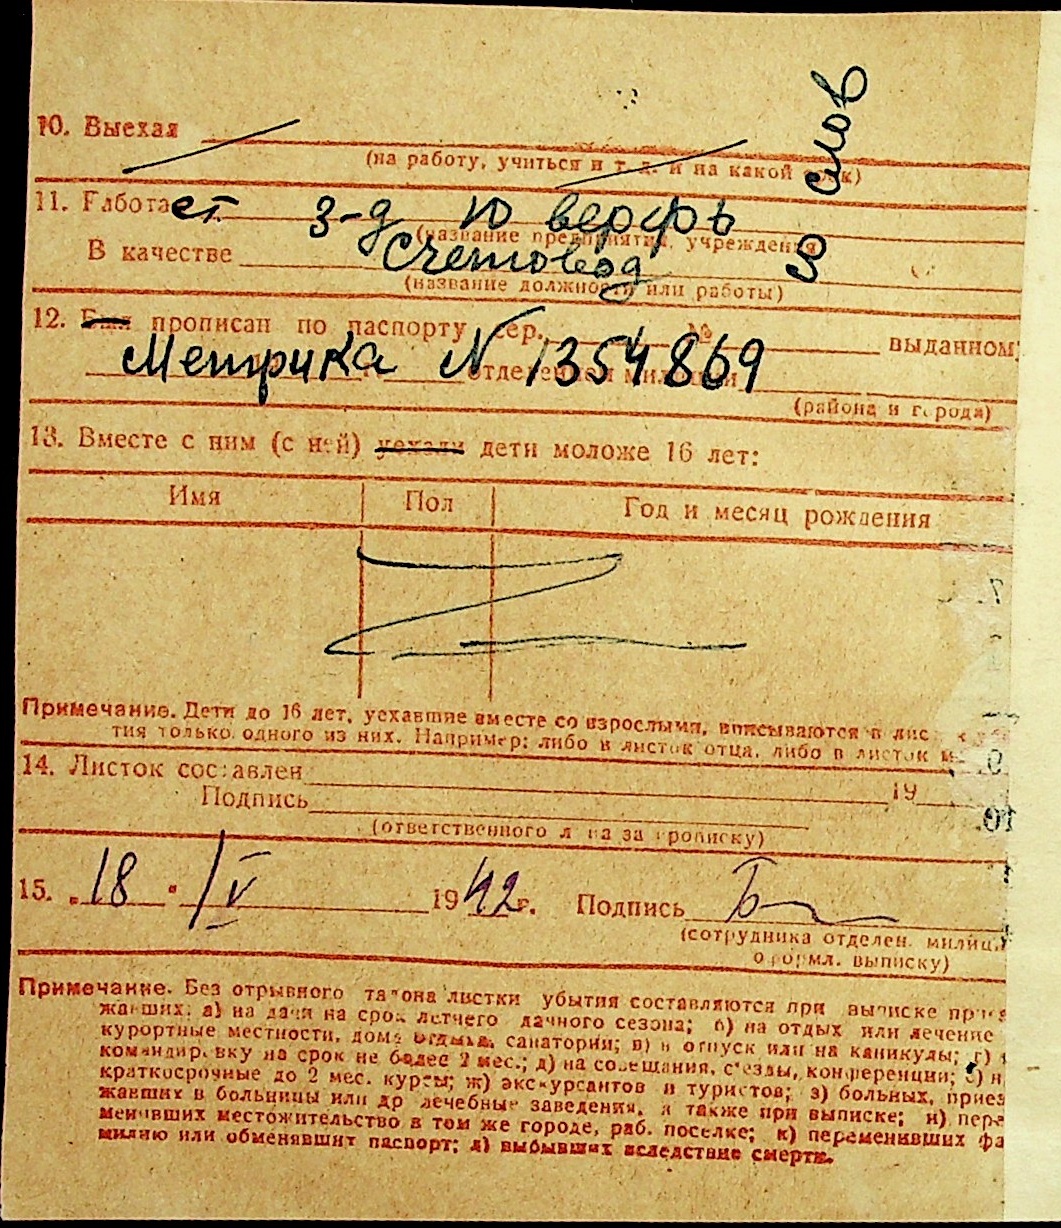 10. Выехал
(на работу, учиться и т. д. и на какой срок)
11. Работает з-д Ю верфь
(название предприятия, учреждения)
В качестве Счетовод
(название должности или работы)
12. Был прописан по паспорту сер. № выданном
Метрика N 1354869
отделением милиции
(района и города)
13. Вместе с ним (с ней) уехали дети моложе 16 лет:
Имя Пол Год и месяц рождения
Примечание. Дети до 16 лет, уехавшие вместе со взрослыми, вписываются в лис
тия только одного из них. Например: либо в листок отца, либо в листок м
14. Листок составлен 19
Подпись
(ответственного лица за прописку)
15. „18 " IV 1942 г. Подпись
(сотрудника отделен. милиц
оформл. выписку)
Примечание. Без отрывного талона листки убытия составляются при выписке приез
жавших: а) на дачи на срок летнего дачного сезона; б) на отдых или лечение
курортные местности, дома отдыха, санатории; в) в отпуск или на каникулы; г)
командировку на срок не более 2 мес.; д) на совещания, съезды, конференции; е) н
краткосрочные до 2 мес. курсы; ж) экскурсантов и туристов; з) больных, приез
жавших в больницы или др лечебные заведения, а также при выписке; и) пере
менивших местожительство в том же городе, раб. поселке; к) переменивших фа
милию или обменявших паспорт; л) выбывших вследствие смерти.